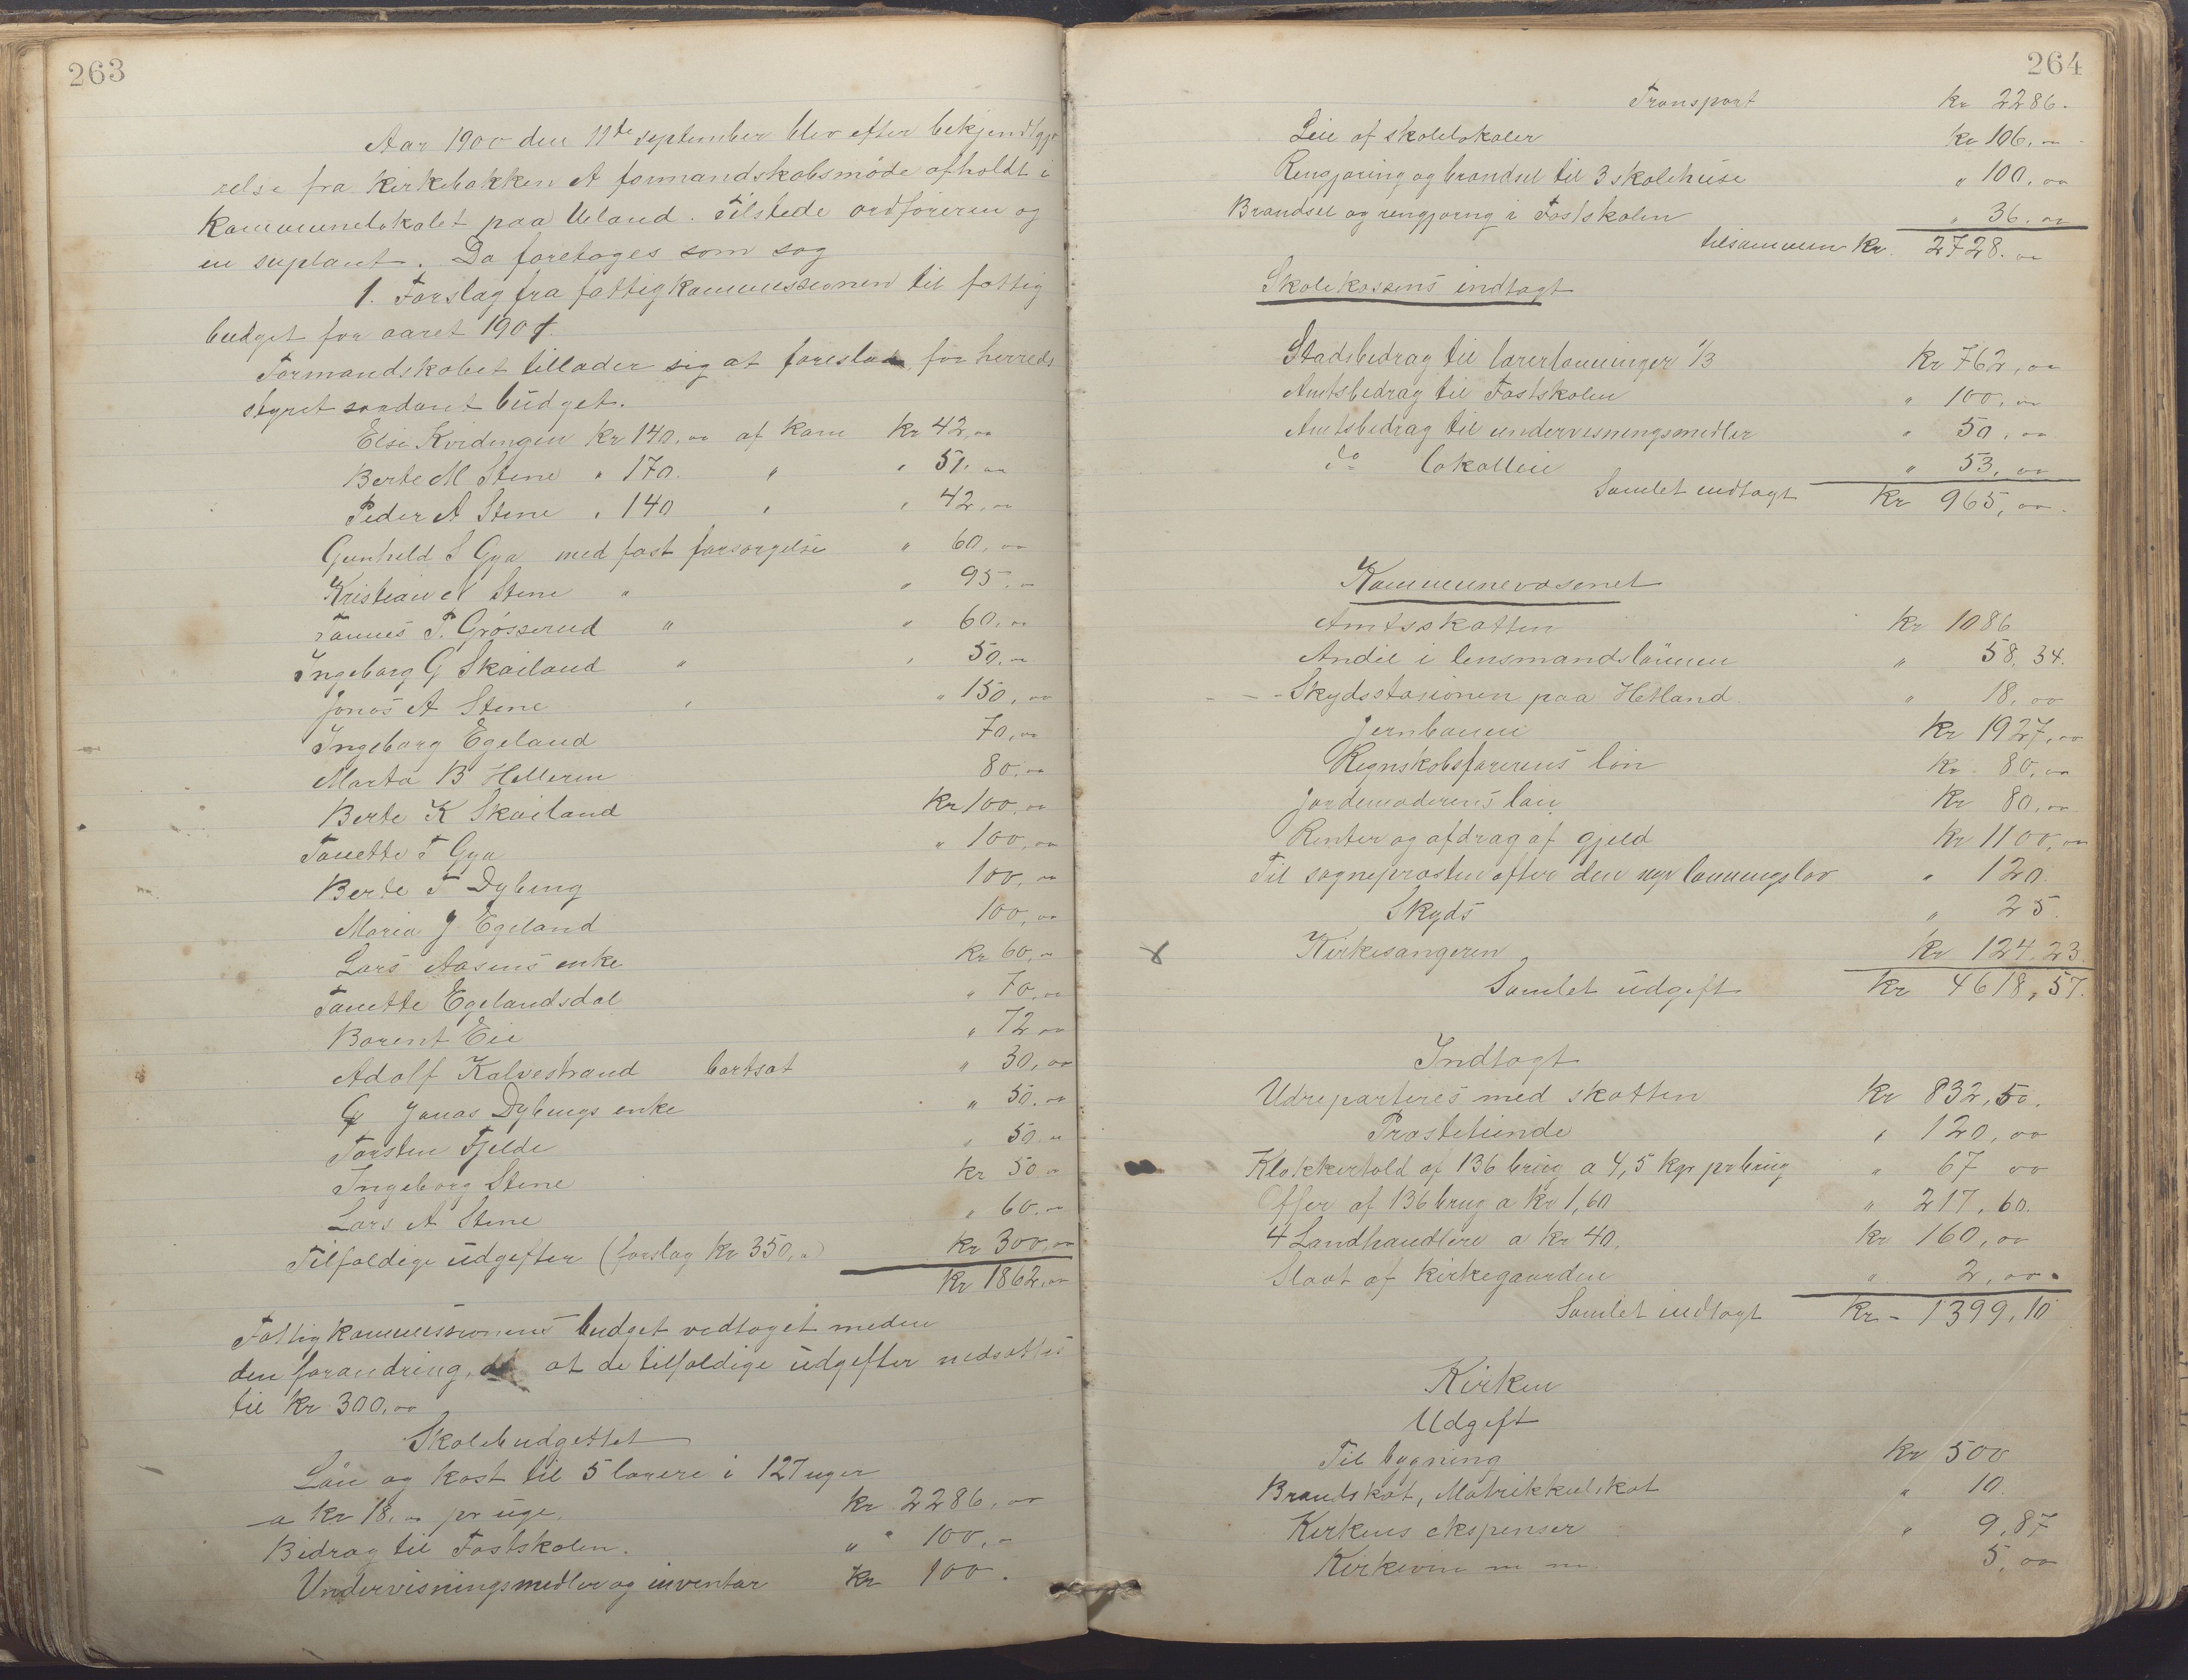 263
Aar 1900 den 11te september blev efter bekjendtgjø
relse fra Kirkebakken et formandskabsmøde afholdt i
Kommunelokalet paa Ueland. Tilstede ordføreren og
en suplant. Da foretages som sag
1. Forslag fra fattigkommissionen til fattig
budget for aaret 1901.
Formandskabet tillader sig at foreslaa for herreds
styret saadant budget.
Else Kvidingen Kr 140,00 af kom Kr 42,00
Berte M Stene " 170. " " 51,00
Peder A Stene " 140 " " 42,00
Gunhild S Gya med fast forsørgelse " 60,00
Kristian N Stene " " 95,00
Tønnes T. Grøsserud " " 60,00
Ingeborg G Skailand " " 50,00
Jonas A Stene " " 150,00
Ingeborg Egeland 70,00
Marta B Helleren 80,00
Berte K Skailand Kr 100,00
Tonette T Gya " 100,00
Berte T Dybing 100,00
Maria J Egeland 100,00
Lars Aasens enke Kr 60,00
Tonette Egelandsdal " 70,00
Borent Eie " 72,00
Adolf Kalvestrand bortsat " 30,00
Jonas Dybings enke " 50,00
Torsten Fjelde " 50,00
Ingeborg Stene Kr 50,00
Lars A Stene " 60,00
Tilfældige udgifter (forslag Kr 350,00) Kr 300,00
Kr 1862,00
Fattigkommissionens budget vedtaget meden
den forandring, at de tilfældige udgifter nedsættes
til Kr 300,00
Skolebudgettet
Løn og kost til 5 lærere i 127 uger
a Kr 18,00 pr uge. Kr 2286,00
Bidrag til Fastskolen. " 100,00
Undervisningsmidler og inventar Kr 100.
264
Transport Kr 2286.
Leie af skolelokaler Kr 106,00
Rengjøring og brændsel til 3 skolehuse " 100,00
Brændsel og rengjørng i Fastskolen " 36,00
tilsammen Kr. 2728,00
Skolekassens indtægt
Stadsbedrag til lærerlønninger 1/3 Kr 762,00
Amtsbedrag til Fastskolen " 100,00
Amtsbedrag til undervisningsmidler " 50,00
do lokalleie " 53,00
Samlet indtægt Kr 965,00
Kommunevæsenet
Amtsskatten Kr 1086
Andel i lensmandslønnen " 58,34.
- - Skydsstasionen paa Hetland " 18,00
Jernbanen Kr 1927,00
Regnskabsførerens løn Kr. 80,00
Jordemoderens løn Kr 80,00
Renter og afdrag af gjeld Kr 1100,00
Til sognepræsten efter den nye lønningslov " 120.
Skyds " 25.
x Kirkesangeren Kr 124.23.
Samlet udgift Kr 4618,57.
Indtægt
Udreparteres med skatten Kr 832,50.
Præstetiende " 120,00
Klokkertold af 136 brug a 4,5 kgr pr brug " 67 00
Offer af 136 brug a Kr 1,60 " 217,60.
4 Landhandlere a Kr 40, Kr 160,00
Slaat af Kirkegaarden " 2,00
Samlet indtægt Kr - 1399,10
Kirken
Udgift
Til bygning Kr 500
Brandskat, Matrikkulskat " 10.
Kirkens ekspenser " 9,87
Kirkevin m m 5,00